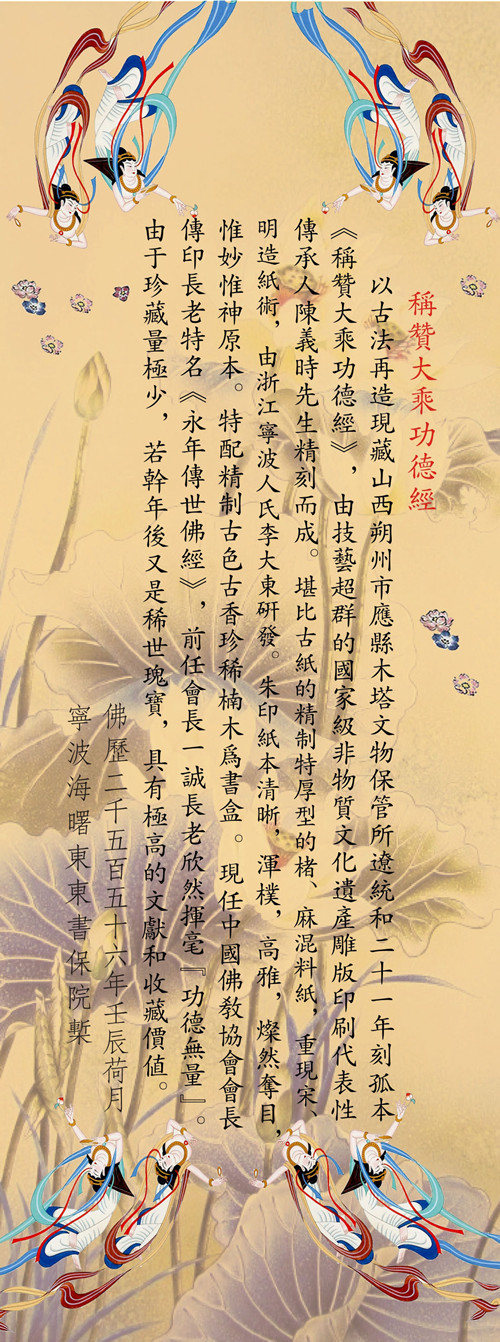 稱贊大乘功德經
以古法再造現藏山西朔州市應縣木塔文物保管所遼統和二十一年刻孤本
《稱贊大乘功德經》，由技藝超群的國家級非物質文化遺產雕版印刷代表性
傳承人陳義時先生精刻而成。堪比古紙的精制特厚型的楮、麻混料紙，重現宋、
明造紙術，由浙江寧波人氏李大東研發。朱印紙本清晰，渾樸，高雅，燦然奪目，
惟妙惟神原本。特配精制古色古香珍稀楠木爲書盒。現任中國佛教協會會長
傳印長老特名《永年傳世佛經》，前任會長一誠長老欣然揮毫『功德無量』。
由于珍藏量極少，若幹年後又是稀世瑰寶，具有極高的文獻和收藏價值。
佛歷二千五百五十六年壬辰荷月
寧波海曙東東書保院槧